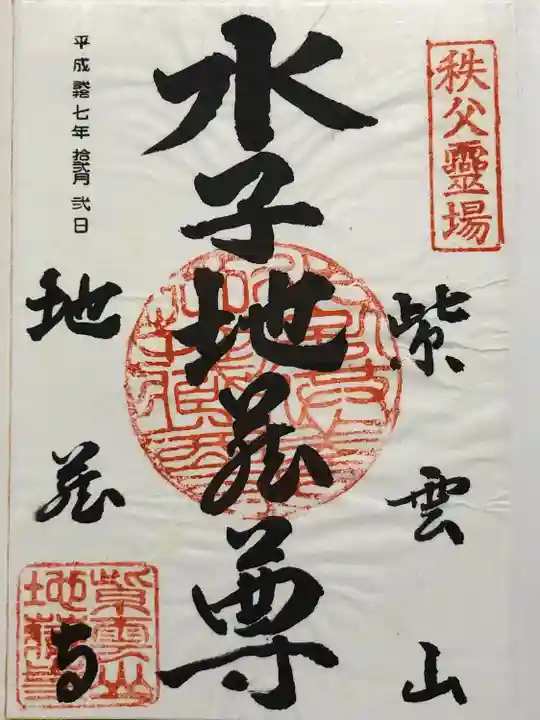 秩父靈場
紫雲山
水子地蔵尊
平成廿七年 拾弐月 弐日
地蔵寺
紫雲山
地蔵寺